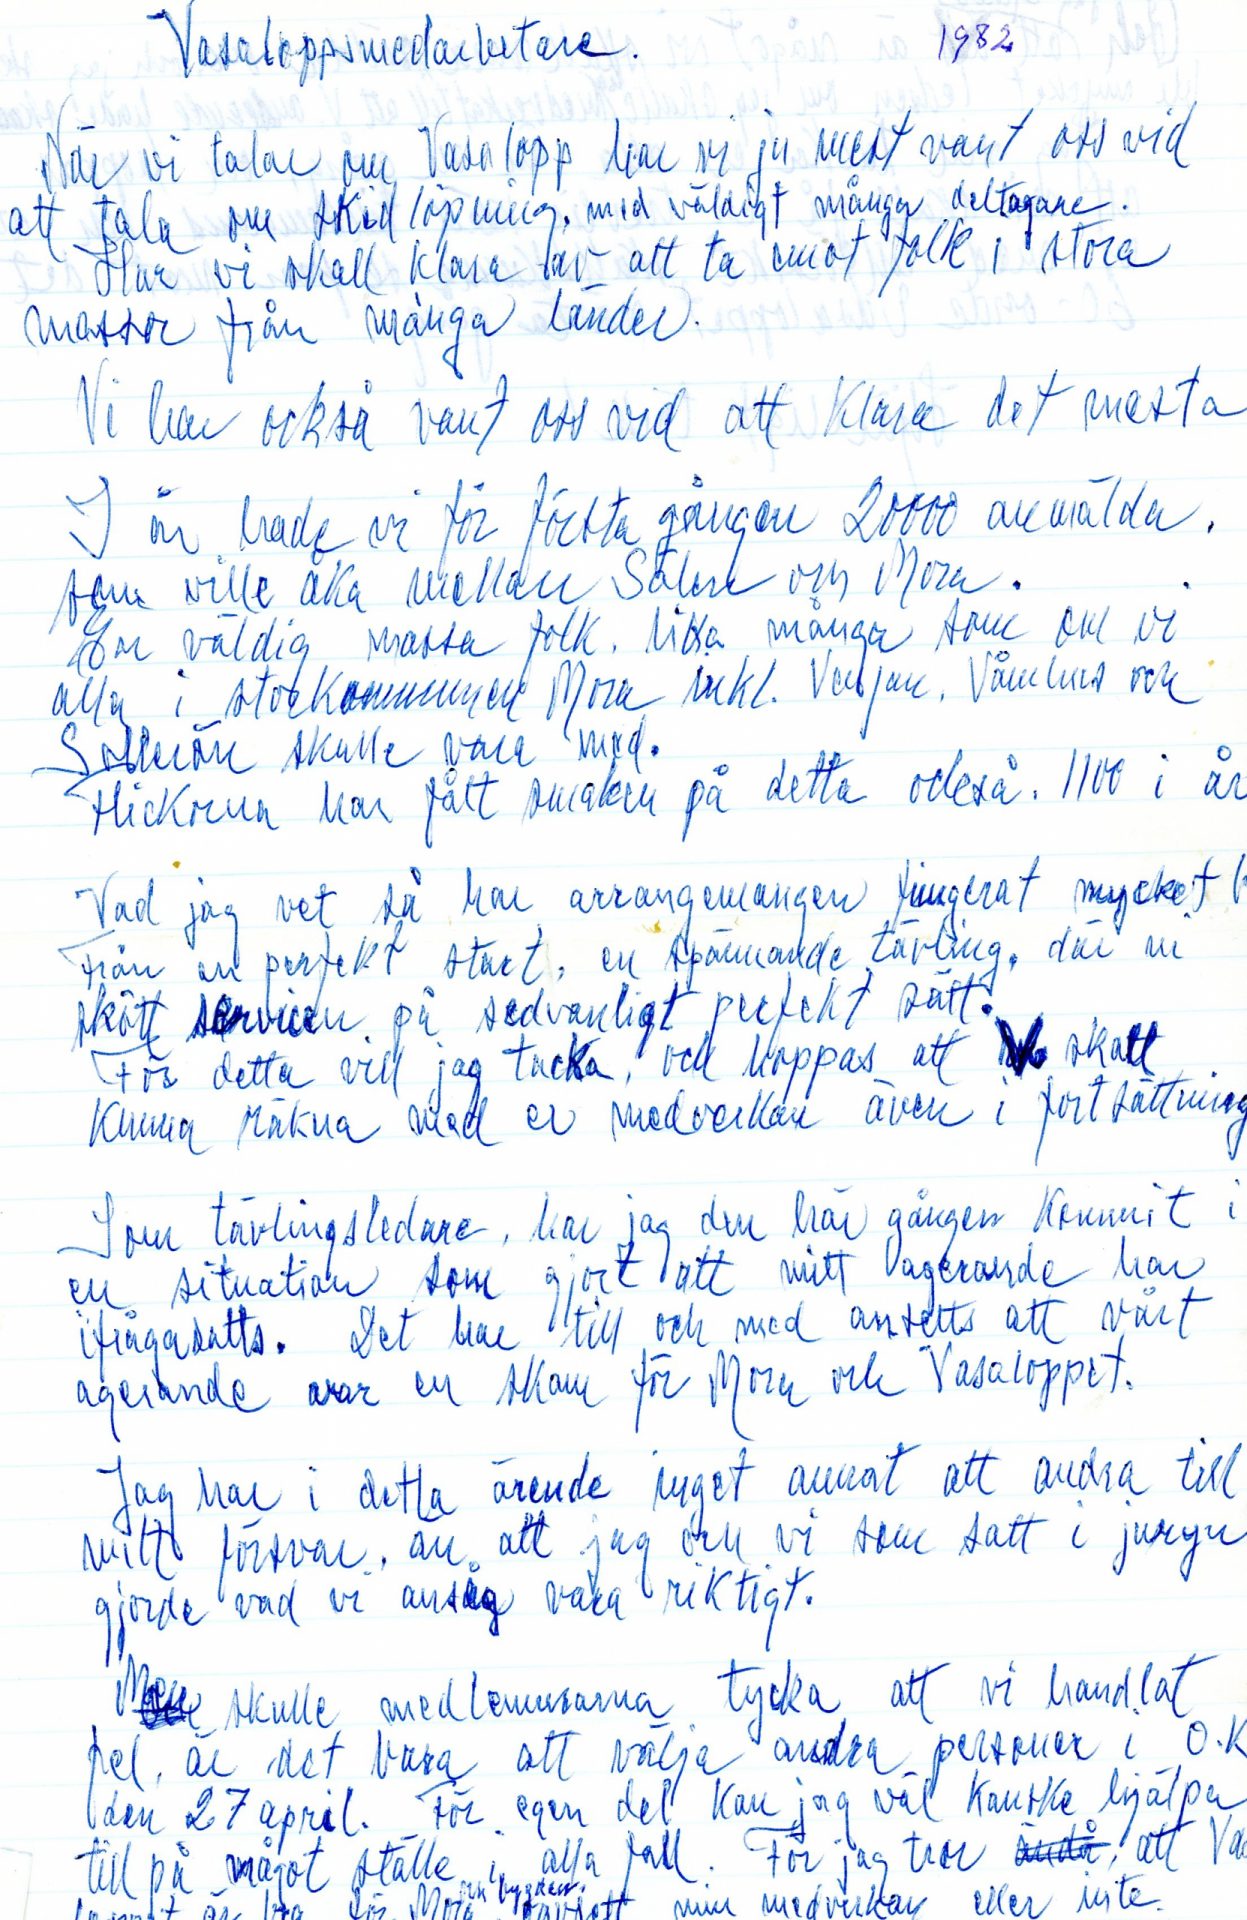 Vasaloppsmedarbetare. 1982
När vi talar om Vasalopp har vi ju mest vant oss vid
att tala om skidlöpning, med väldigt många deltagare.
Hur vi skall klara av att ta emot folk i stora
massor från många länder.
Vi har också vant oss vid att klara det mesta
I år hade vi för första gången 20000 anmälda,
som ville åka mellan Sälen och Mora.
En väldig massa folk, lika många som om vi
alla i storkommunen Mora inkl. Venjan, Våmhus och
Sollerön skulle vara med.
Flickorna har fått smaken på detta också. 1100 i år
Vad jag vet så har arrangemangen fungerat mycket b
Från en perfekt start, en spännande tävling, där ni
skött servicen på sedvanligt perfekt sätt.
För detta vill jag tacka, och hoppas att V skall
kunna räkna med er medverkan även i fortsättning
Som tävlingsledare, har jag den här gången kommit i
en situation som gjort att mitt agerande har
ifrågasatts. Det har till och med ansetts att vårt
agerande var en skam för Mora och Vasaloppet.
Jag har i detta ärende inget annat att andra till
mitt försvar, än att jag och vi som satt i juryn
gjorde vad vi ansåg vara riktigt.
Men skulle medlemmarna tycka att vi handlat
fel, är det bara att välja andra personer i O.K
den 27 april. För egen del kan jag väl kanske hjälpa
till på något ställe i alla fall. För jag tror ändå, att Va
är bra för Mora och bygden, oavsett min medverkan eller inte.